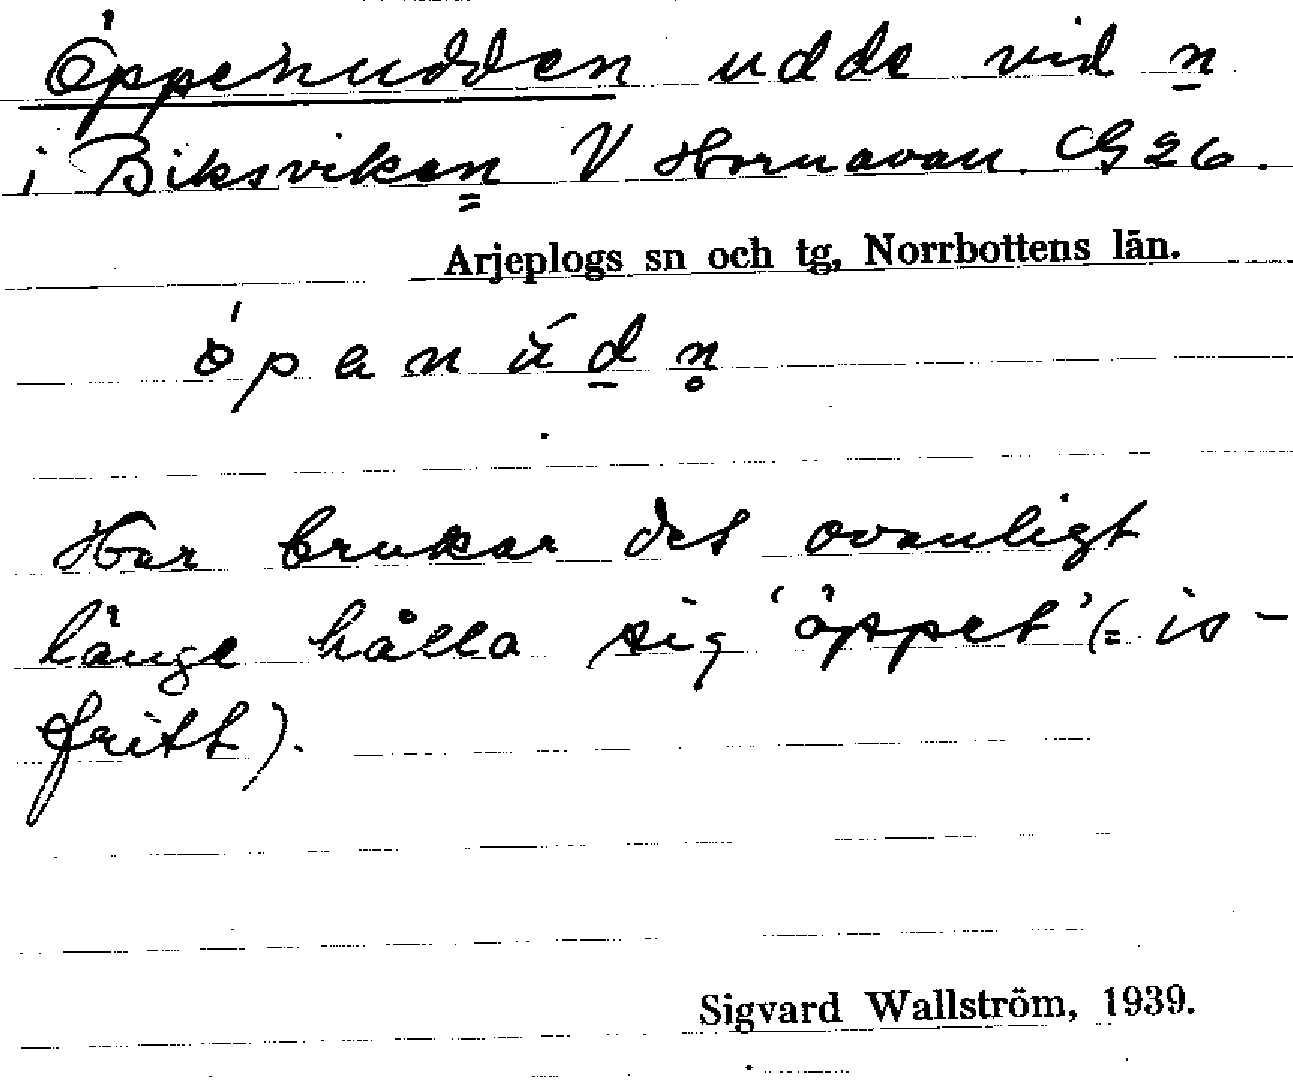 Öppenudden udde vid n
i Biksviken V Hornavan G 26.
Arjeplogs sn och tg, Norrbottens län.
Här brukar det ovanligt
länge hålla sig 'öppet' (= is-
fritt).
Sigvard Wallström, 1939.